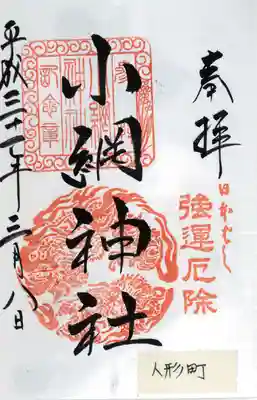 奉拝
日本ばし
強運厄除
小網神社
平成二十一年三月八日
人形町